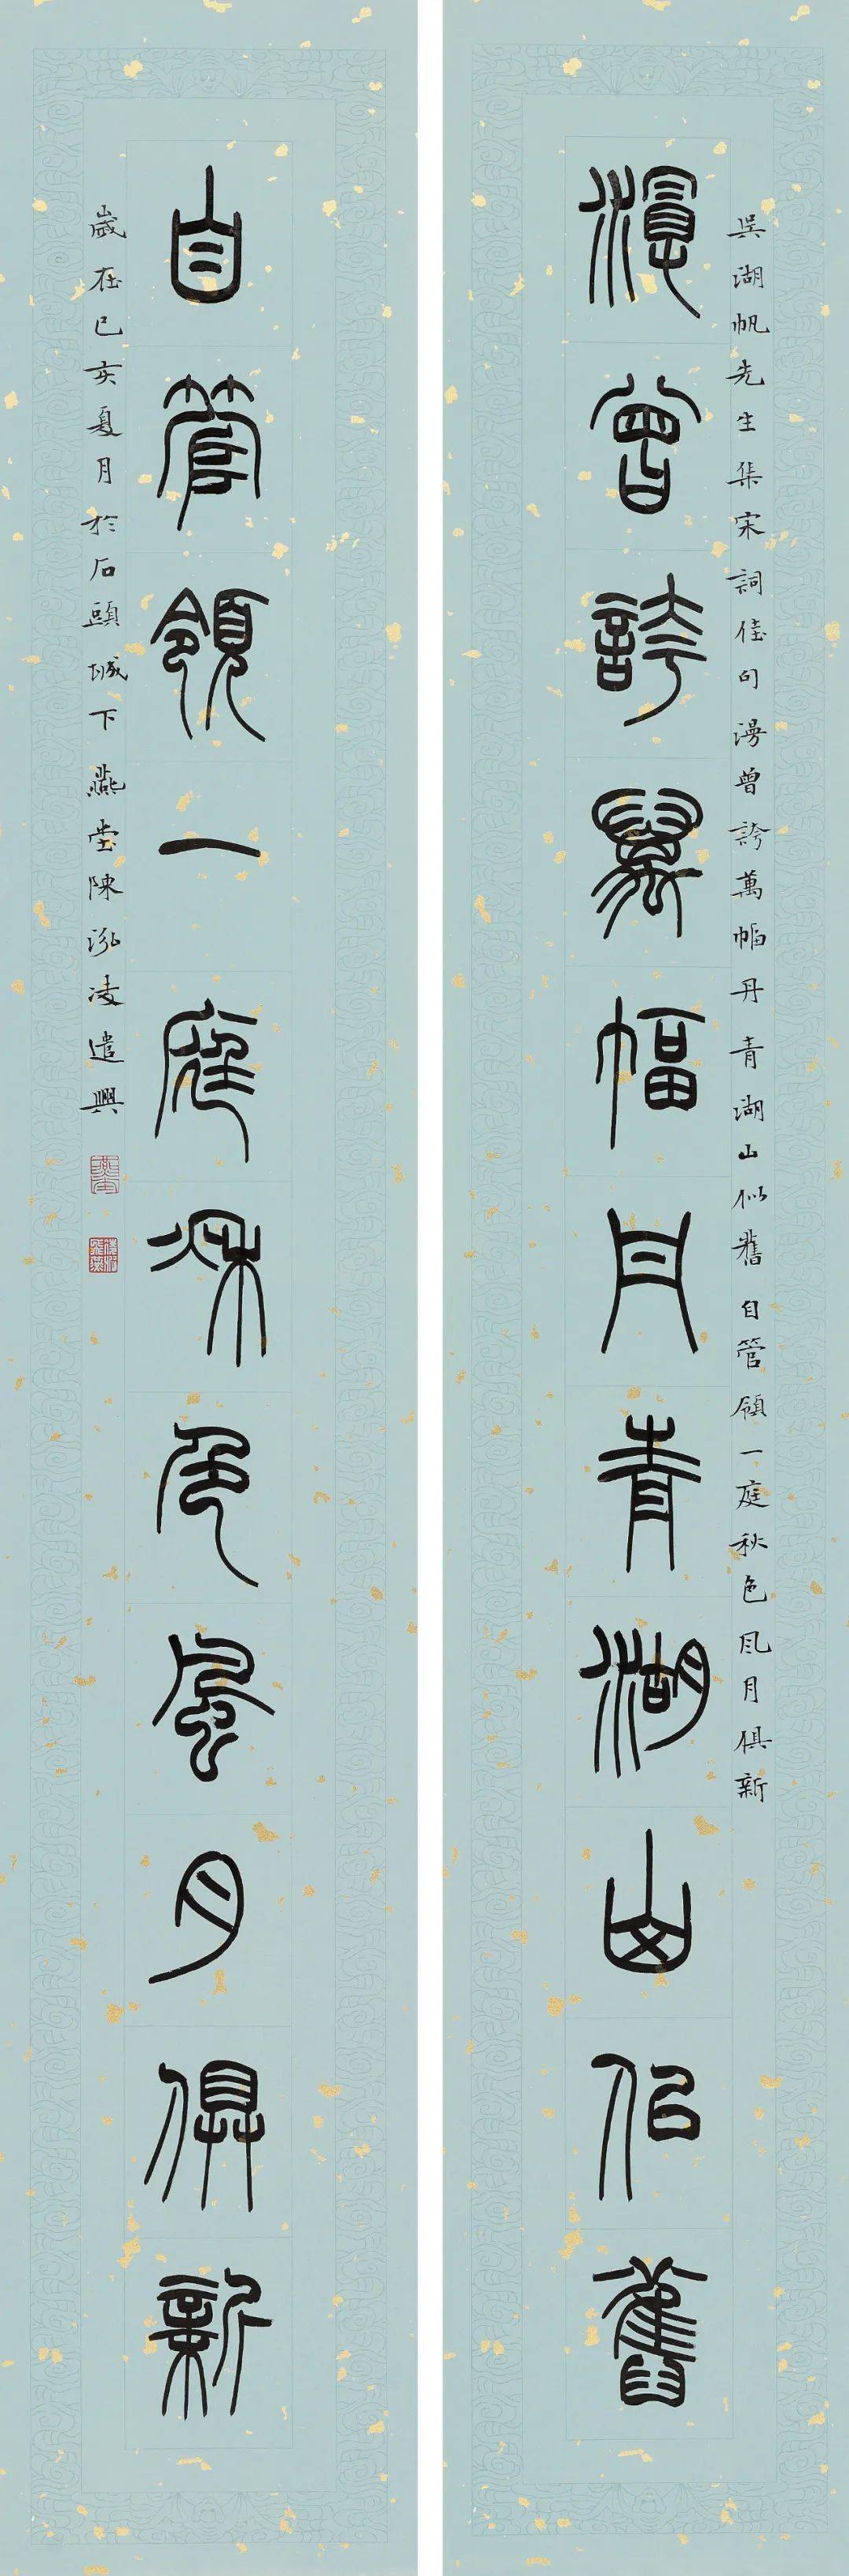 吳湖帆先生集宋詞佳句漫曾誇萬幅丹青湖山似舊自管領一庭秋色風月俱新
漫曾誇萬幅丹青湖山似舊
自管領一庭秋色風月俱新
歲在己亥夏月於石頭城下燕堂陳泓凌遣興